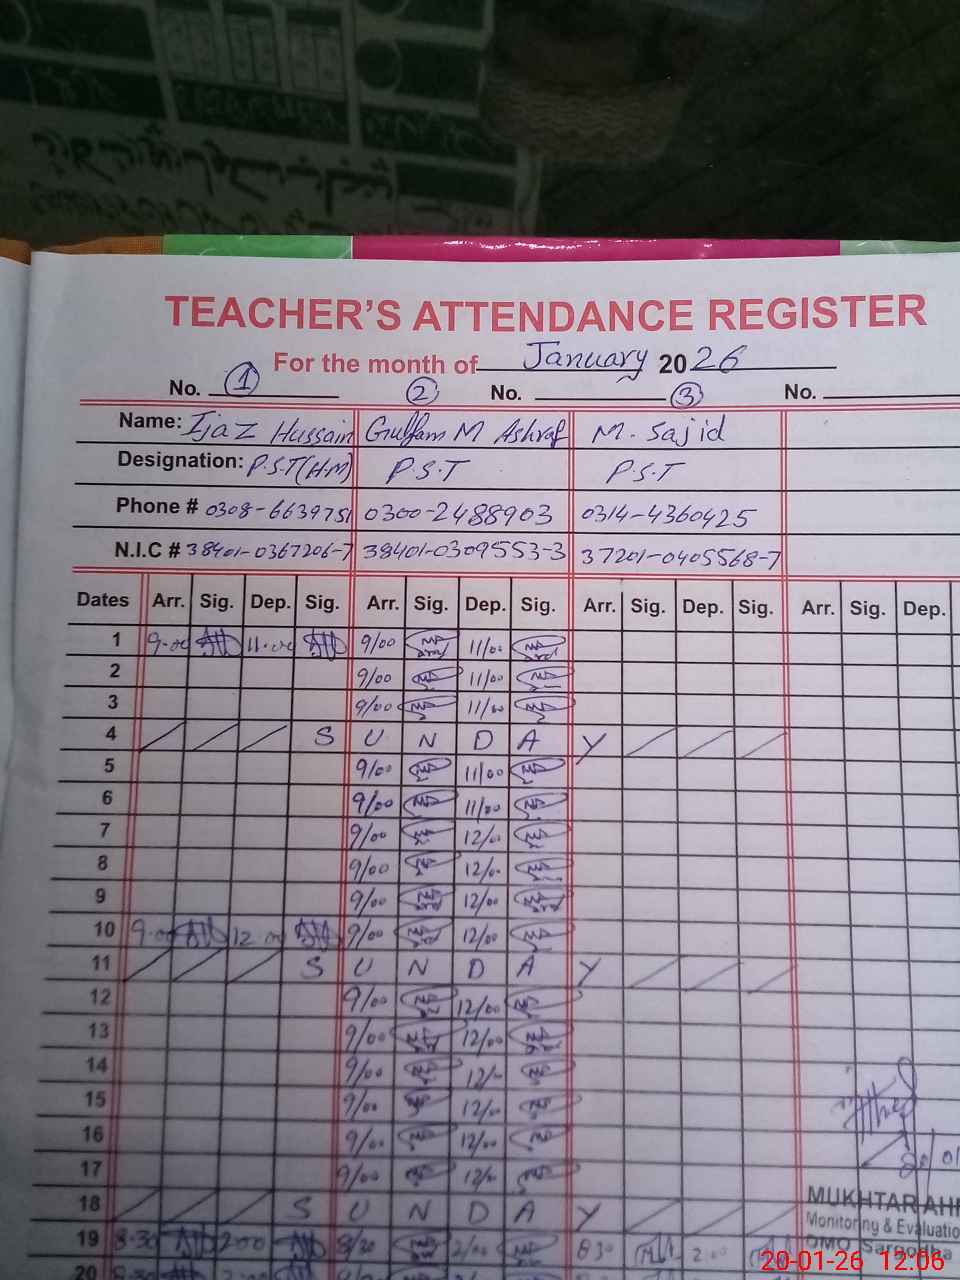 TEACHER'S ATTENDANCE REGISTER
For the month of January 20 26
No. 1 2 No. 3 No.
Name: Ijaz Hussain Gulfam M Ashraf M. Sajid
Designation: P.S.T(H.M) P.S.T P.S.T
Phone # 0308-6639751 0300-2488903 0314-4360425
N.I.C # 38401-0367206-7 38401-0309553-3 37201-0405568-7
Dates Arr. Sig. Dep. Sig. Arr. Sig. Dep. Sig. Arr. Sig. Dep. Sig. Arr. Sig. Dep.
1 9.00 11.00 9/00 11/00
2 9/00 11/00
3 9/00 11/00
4 S U N D A Y
5 9/00 11/00
6 9/00 11/00
7 9/00 12/00
8 9/00 12/00
9 9/00 12/00
10 9.00 12.00 9/00 12/00
11 S U N D A Y
12 9/00 12/00
13 9/00 12/00
14 9/00 12/-
15 9/00 12/00
16 9/00 12/00
17 9/00 12/00
18 S U N D A Y
19 8.30 2.00 8/30 2/00 830 2.00
20 8.30
MUKHTAR AH
Monitoring & Evaluatio
OMO Sargodha
20-01-26 12:06